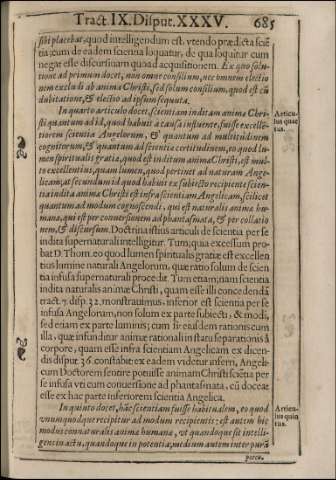 Tract. IX. Disput. XXXV. 685
sibi placebat, quod intelligendum est, vtendo prædicta sciẽ
tia: cum de eadem scientia loquatur, de qua loquitur cum
negat esse discursiuam quoad acquisitionem. Ex quo solu-
tione ad primum docet, non omne consilium, nec omnem electio
nem excludi ab anima Christi, sed solum consilium, quod est cũ
dubitatione, & electio ad ipsum sequuta.
In quarto articulo docet, scientiam inditam animæ Chri-
sti quantum ad id, quod habuit à causa influente, fuisse excellẽ-
tiorem scientia Angelorum, & quantum ad multitudinem
cognitorum, & quantum ad scientiæ certitudinem, eo quod lu-
men spirituale gratiæ, quod est inditum animæ Christi, est mul-
to excellentius, quam lumen, quod pertinet ad naturam Ange-
licam; at secundum id quod habuit ex subiecto recipiente scien-
tia indita animæ Christi est infra scientiam Angelicam, scilicet
quantum ad modum cognoscendi, qui est naturalis animæ hu-
manæ, qui est per conuersionem ad phantasmata, & per collatio
nem, & discursum. Doctrina istius articuli de scientia per se
indita supernaturali intelligitur. Tum; quia excessum pro-
bat D. Thom. eo quod lumen spiritualis gratiæ est excellen
tius lumine naturali Angelorum, quæ ratio solum de scien
tia infusa supernaturali procedit. Tum etiam; nam scientia
indita naturalis animæ Christi, quam esse illi concedendã
tract. 7. disp. 32. monstrauimus, inferior est scientia per se
infusa Angelorum, non solum ex parte subiecti, & modi,
sed etiam ex parte luminis; cum sit eiusdem rationis cum
illa, quæ infunditur animæ rationali in statu separationis à
corpore, quam esse infra scientiam Angelicam ex dicen-
dis disput. 36. constabit: ex eadem videtur infern, Angeli-
cum Doctorem sentire potuisse animam Christi sciẽtia per
se infusa vti cum conuersione ad phantasmata, cũ doceat
esse ex hac parte inferiorem scientia Angelica.
In quinto docet, hãc scientiam fuisse habitualem, eo quod
vnumquodque recipitur ad modum recipientis; est autem hic
modus connaturalis animæ humanæ, vt quandoque sit intelli-
gens in actu, quandoque in potentia; medium autem inter purã
poten-
Articu-
lus quar
tus.
Articu-
lus quin
tus.